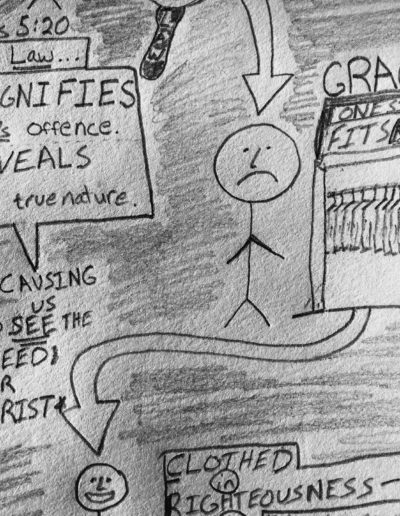 s 5:20
Law...
GNIFIES
's offence.
VEALS
true nature.
CAUSING
US
SEE THE
EED
R
RIST*
GRAC
ONE SI
FITS
CLOTHED
in
RIGHTEOUSNESS -